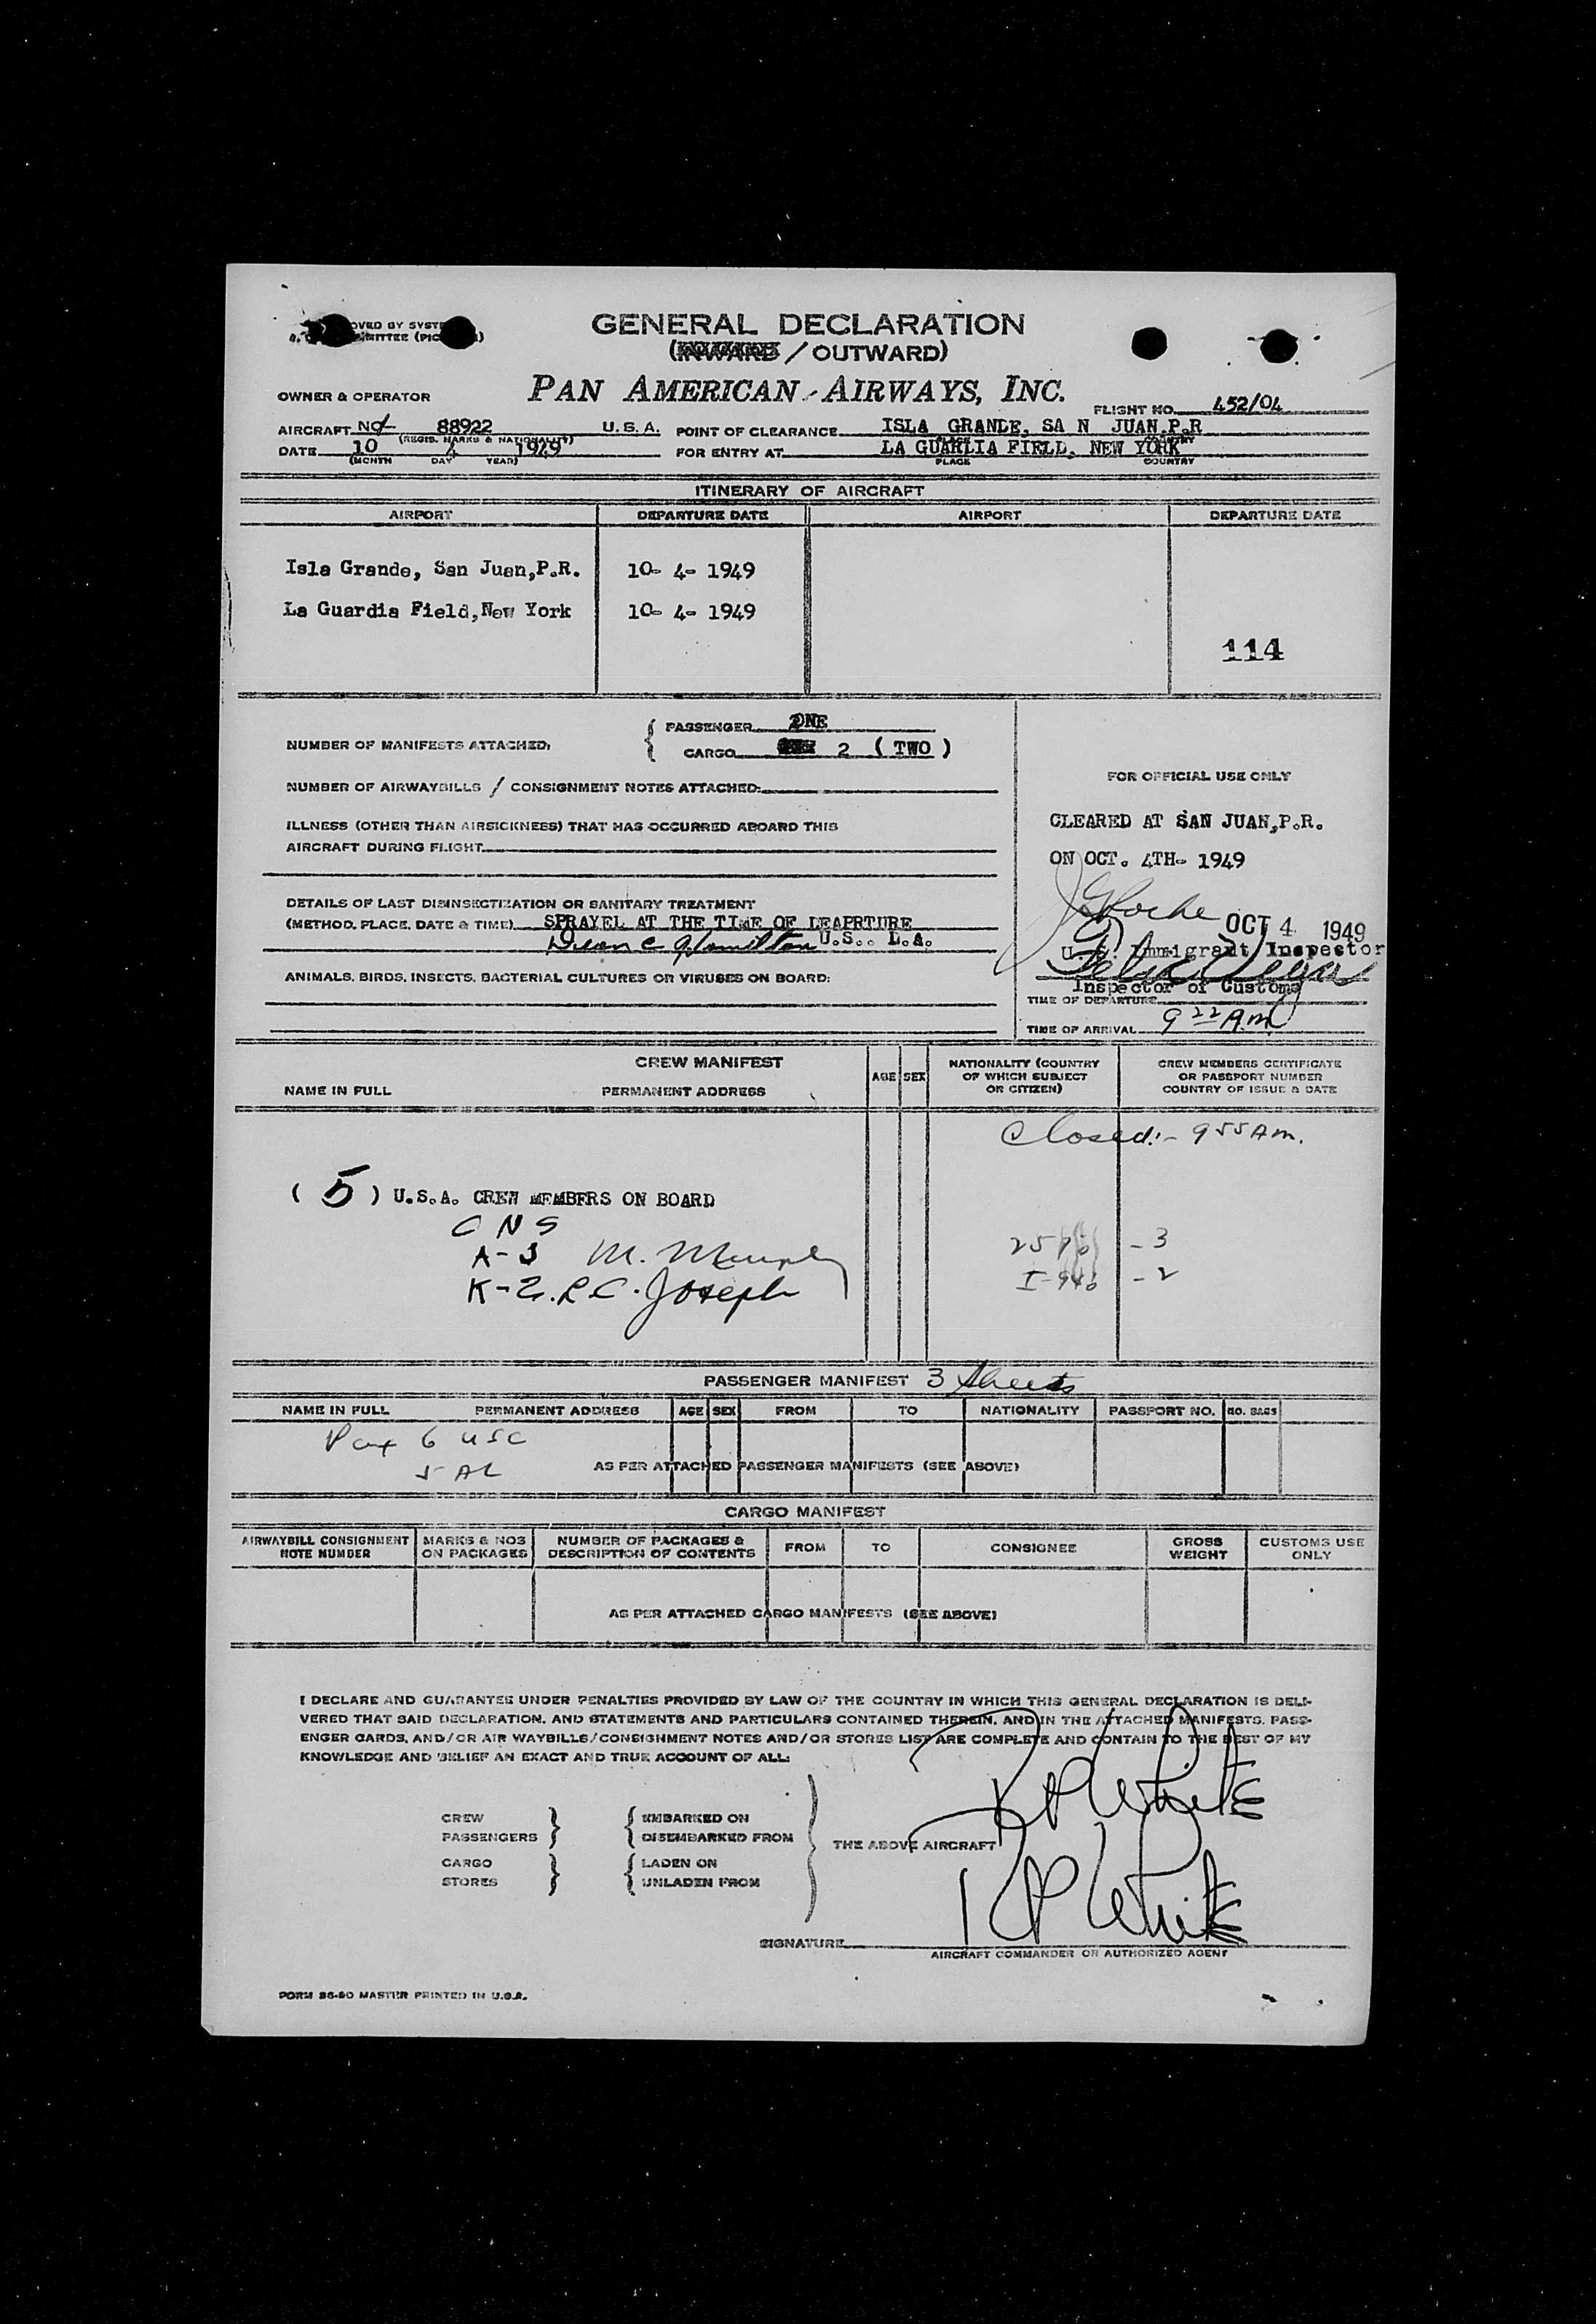 GENERAL DECLARATION
(INWARD / OUTWARD)
PAN AMERICAN AIRWAYS, INC.
OWNER & OPERATOR
FLIGHT NO. 452/04
AIRCRAFT 88922 U.S.A. POINT OF CLEARANCE ISLA GRANDE, SA N JUAN,P.R
(REGIS. MARKS & NATIONALITY) PLACE COUNTRY
DATE 10 4 1949 FOR ENTRY AT LA GUARDIA FIELD, NEW YORK
(MONTH DAY YEAR) PLACE COUNTRY
ITINERARY OF AIRCRAFT
AIRPORT DEPARTURE DATE AIRPORT DEPARTURE DATE
Isla Grande, San Juan,P.R. 10- 4- 1949
La Guardia Field,New York 10- 4- 1949
114
NUMBER OF MANIFESTS ATTACHED: PASSENGER ONE
CARGO 2 ( TWO )
NUMBER OF AIRWAYBILLS / CONSIGNMENT NOTES ATTACHED:
ILLNESS (OTHER THAN AIRSICKNESS) THAT HAS OCCURRED ABOARD THIS
AIRCRAFT DURING FLIGHT
DETAILS OF LAST DISINSECTIZATION OR SANITARY TREATMENT
(METHOD, PLACE, DATE & TIME) SPRAYED AT THE TIME OF DEAPRTURE
Hamilton U.S..
ANIMALS, BIRDS, INSECTS, BACTERIAL CULTURES OR VIRUSES ON BOARD:
FOR OFFICIAL USE ONLY
CLEARED AT SAN JUAN,P.R.
ON OCT. 4TH- 1949
OCT 4 1949
U. S. Immigrant Inspector
Inspector of Customs
TIME OF DEPARTURE
TIME OF ARRIVAL 9 22 AM
CREW MANIFEST
NAME IN FULL PERMANENT ADDRESS AGE SEX NATIONALITY (COUNTRY OF WHICH SUBJECT OR CITIZEN) CREW MEMBERS CERTIFICATE OR PASSPORT NUMBER COUNTRY OF ISSUE & DATE
Closed:- 9 55 Am.
( 5 ) U.S.A. CREW MEMBERS ON BOARD
C N S
A-3 M. Murphy
- 3
K-2. R.C. Joseph
I-946 - 2
PASSENGER MANIFEST 3 sheets
NAME IN FULL PERMANENT ADDRESS AGE SEX FROM TO NATIONALITY PASSPORT NO. NO. BAGS
Pax 6 USC
5 AL
AS PER ATTACHED PASSENGER MANIFESTS (SEE ABOVE)
CARGO MANIFEST
AIRWAYBILL CONSIGNMENT NOTE NUMBER MARKS & NOS ON PACKAGES NUMBER OF PACKAGES & DESCRIPTION OF CONTENTS FROM TO CONSIGNEE GROSS WEIGHT CUSTOMS USE ONLY
AS PER ATTACHED CARGO MANIFESTS (SEE ABOVE)
I DECLARE AND GUARANTEE UNDER PENALTIES PROVIDED BY LAW OF THE COUNTRY IN WHICH THIS GENERAL DECLARATION IS DELI-
VERED THAT SAID DECLARATION, AND STATEMENTS AND PARTICULARS CONTAINED THEREIN, AND IN THE ATTACHED MANIFESTS, PASS-
ENGER CARDS, AND/OR AIR WAYBILLS/CONSIGNMENT NOTES AND/OR STORES LIST ARE COMPLETE AND CONTAIN TO THE BEST OF MY
KNOWLEDGE AND BELIEF AN EXACT AND TRUE ACCOUNT OF ALL:
CREW EMBARKED ON
PASSENGERS DISEMBARKED FROM
THE ABOVE AIRCRAFT
CARGO LADEN ON
STORES UNLADEN FROM
RP White
RP White
SIGNATURE
AIRCRAFT COMMANDER OR AUTHORIZED AGENT
FORM 36-90 MASTER PRINTED IN U.S.A.